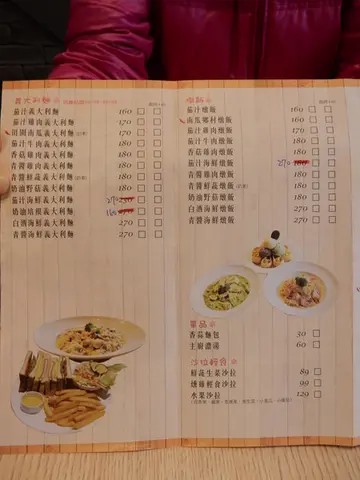 義大利麵
茄汁義大利麵 160
茄汁雞肉義大利麵 170
田園南瓜義大利麵 170
茄汁牛肉義大利麵 180
香菇雞肉義大利麵 180
青醬雞肉義大利麵 180
青醬鮮蔬義大利麵 180
奶油野菇義大利麵 180
茄汁海鮮義大利麵
奶油培根義大利麵
白酒海鮮義大利麵 270
青醬海鮮義大利麵 270
燉飯
茄汁燉飯 160
南瓜鄉村燉飯 160
茄汁雞肉燉飯 170
茄汁牛肉燉飯 180
香菇雞肉燉飯 180
茄汁海鮮燉飯 270
青醬雞肉燉飯 180
青醬鮮蔬燉飯 180
奶油野菇燉飯 180
白酒海鮮燉飯 270
青醬海鮮燉飯 270
單品
香蒜麵包 30
主廚濃湯 60
沙拉輕食
鮮蔬生菜沙拉 89
燻雞輕食沙拉 99
水果沙拉 129